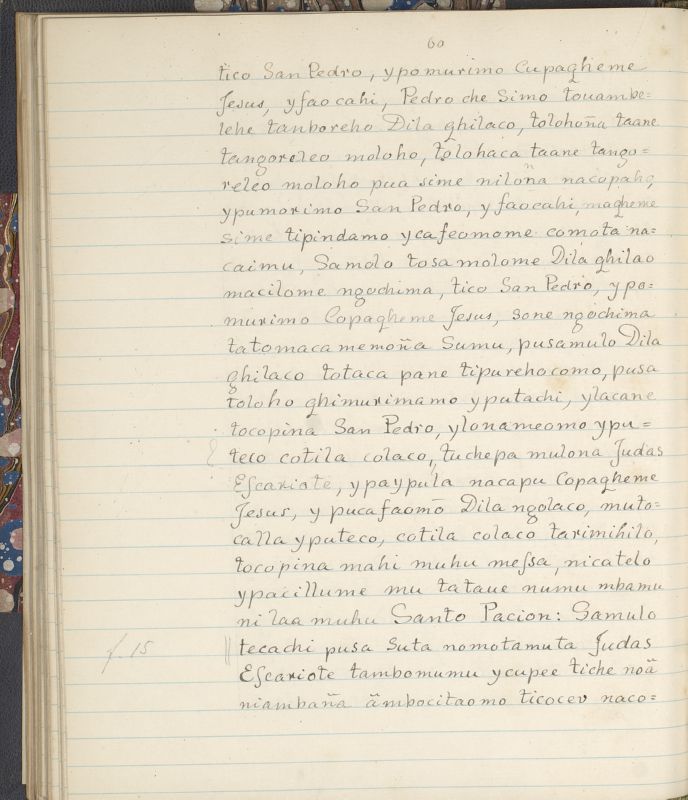 60
tico San Pedro, ypomurimo Cupagheme
Jesus, yfaocahi, Pedro che Simo touambe=
lehe tanboreho Dila ghilaco, tolohoña taane
tangoreleo moloho, tolohaca taane tango=
releo moloho pua sime niloña nacopaho,
ypumorimo San Pedro, yfaocahi, magheme
sime tipindamo ycafeomome comota na=
caimu, Samolo tosa molome Dila ghilao
macilome ngochima, tico San Pedro, ypo=
murimo Copagheme Jesus, sone ngochima
tatomacamemoña Sumu, pusamulo Dila
ghilaco totaca pane tipurehocomo, pusa
toloho ghimurimamo yputachi, ylacane
tocopina San Pedro, ylonameomo ypu=
teco cotila colaco, tuchepa mulona Judas
Escariote, ypaypula nacapu Copagheme
Jesus, y pucafaomō Dila ngolaco, muto=
calla yputeco, cotila colaco tarimihilo,
tocopina mahi muhu messa, nicatelo
ypacillume mu tataue numu mbamu
nilaa muhu Santo Pacion: Samulo
f. 15 || tecachi pusa suta nomotamuta Judas
Escariote tambomumu ycupee tiche noã
niambaña ãmbocitaomo ticoceo naco=